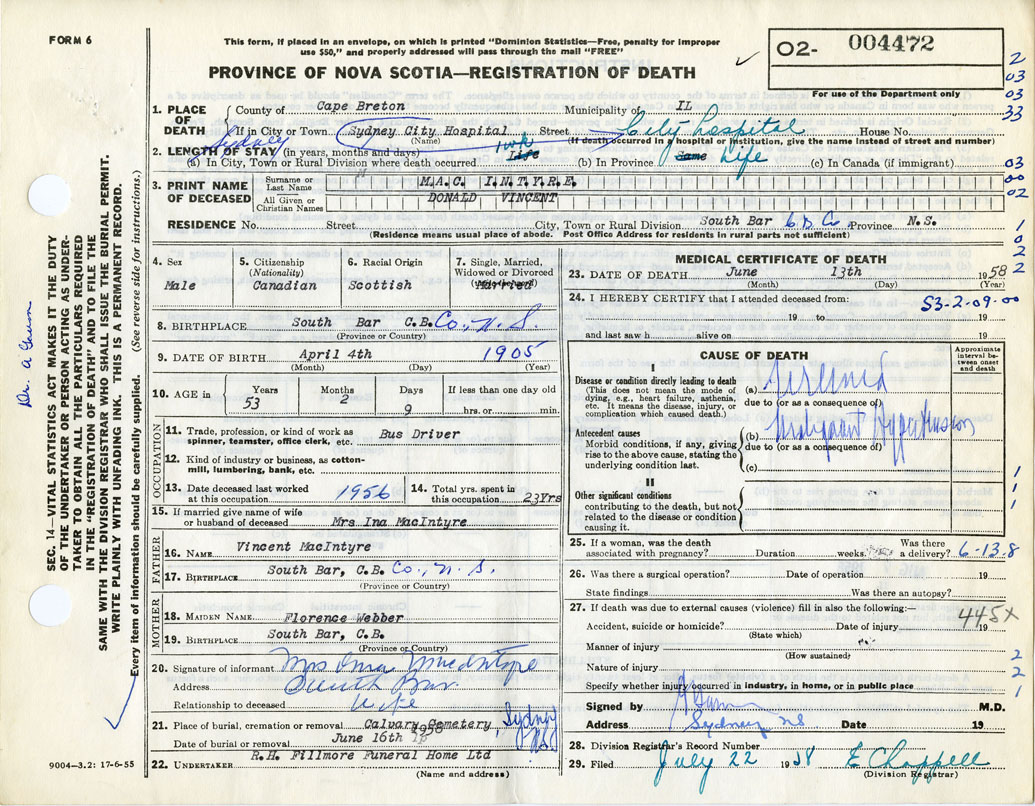 FORM 6
This form, if placed in an envelope, on which is printed "Dominion Statistics—Free, penalty for improper
use $50," and properly addressed will pass through the mail "FREE"
O2- 004472
For use of the Department only
PROVINCE OF NOVA SCOTIA—REGISTRATION OF DEATH
1. PLACE OF DEATH
County of Cape Breton Municipality of IL
If in City or Town Sydney City Hospital Street City Hospital House No.
(Name) (If death occurred in a hospital or institution, give the name instead of street and number)
Sydney
2. LENGTH OF STAY (in years, months and days)
(a) In City, Town or Rural Division where death occurred 1 wk Life (b) In Province Same Life (c) In Canada (if immigrant)
3. PRINT NAME OF DECEASED
Surname or Last Name MAC INTYRE
All Given or Christian Names DONALD VINCENT
RESIDENCE No. Street City, Town or Rural Division South Bar C B Co, Province N.S.
(Residence means usual place of abode. Post Office Address for residents in rural parts not sufficient)
4. Sex
Male
5. Citizenship
(Nationality)
Canadian
6. Racial Origin
Scottish
7. Single, Married,
Widowed or Divorced
(Write the word)
Married
8. BIRTHPLACE South Bar C.B. Co., N.S.
(Province or Country)
9. DATE OF BIRTH April 4th 1905
(Month) (Day) (Year)
10. AGE in
Years
53
Months
2
Days
9
If less than one day old
hrs. or min.
OCCUPATION
11. Trade, profession, or kind of work as
spinner, teamster, office clerk, etc. Bus Driver
12. Kind of industry or business, as cotton-
mill, lumbering, bank, etc.
13. Date deceased last worked
at this occupation 1956
14. Total yrs. spent in
this occupation 23Yrs
15. If married give name of wife
or husband of deceased Mrs Ina MacIntyre
FATHER
16. NAME Vincent MacIntyre
17. BIRTHPLACE South Bar, C.B. Co., N.S.
(Province or Country)
MOTHER
18. MAIDEN NAME Florence Webber
19. BIRTHPLACE South Bar, C.B.
(Province or Country)
20. Signature of informant Mrs Ina MacIntyre
Address South Bar
Relationship to deceased Wife
21. Place of burial, cremation or removal Calvary Cemetery, Sydney NS
Date of burial or removal June 16th 1958
22. UNDERTAKER R.H. Fillmore Funeral Home Ltd
(Name and address)
MEDICAL CERTIFICATE OF DEATH
23. DATE OF DEATH June 13th 1958
(Month) (Day) (Year)
24. I HEREBY CERTIFY that I attended deceased from:
53-2-09-00
19 to 19
and last saw h alive on 19
CAUSE OF DEATH
Approximate interval between onset and death
I
Disease or condition directly leading to death
(This does not mean the mode of
dying, e.g., heart failure, asthenia,
etc. It means the disease, injury, or
complication which caused death.)
(a) Uremia
due to (or as a consequence of)
Antecedent causes
Morbid conditions, if any, giving
rise to the above cause, stating the
underlying condition last.
(b) Malignant Hypertension
due to (or as a consequence of)
(c)
II
Other significant conditions
contributing to the death, but not
related to the disease or condition
causing it.
25. If a woman, was the death
associated with pregnancy? Duration weeks. Was there
a delivery? 6-13-8
26. Was there a surgical operation? Date of operation 19
State findings Was there an autopsy?
27. If death was due to external causes (violence) fill in also the following:—
445X
Accident, suicide or homicide? Date of injury 19
(State which)
Manner of injury
(How sustained)
Nature of injury
Specify whether injury occurred in industry, in home, or in public place
Signed by M.D.
Address Sydney NS Date 19
28. Division Registrar's Record Number
29. Filed July 22 1958 E Chappell
(Division Registrar)
2
03
03
33
03
00
02
1
0
2
2
1
1
1
2
2
1
SEC. 14—VITAL STATISTICS ACT MAKES IT THE DUTY
OF THE UNDERTAKER OR PERSON ACTING AS UNDER-
TAKER TO OBTAIN ALL THE PARTICULARS REQUIRED
IN THE "REGISTRATION OF DEATH" AND TO FILE THE
SAME WITH THE DIVISION REGISTRAR WHO SHALL ISSUE THE BURIAL PERMIT.
WRITE PLAINLY WITH UNFADING INK. THIS IS A PERMANENT RECORD.
Every item of information should be carefully supplied. (See reverse side for instructions.)
Dr. A
9004-3.2: 17-6-55